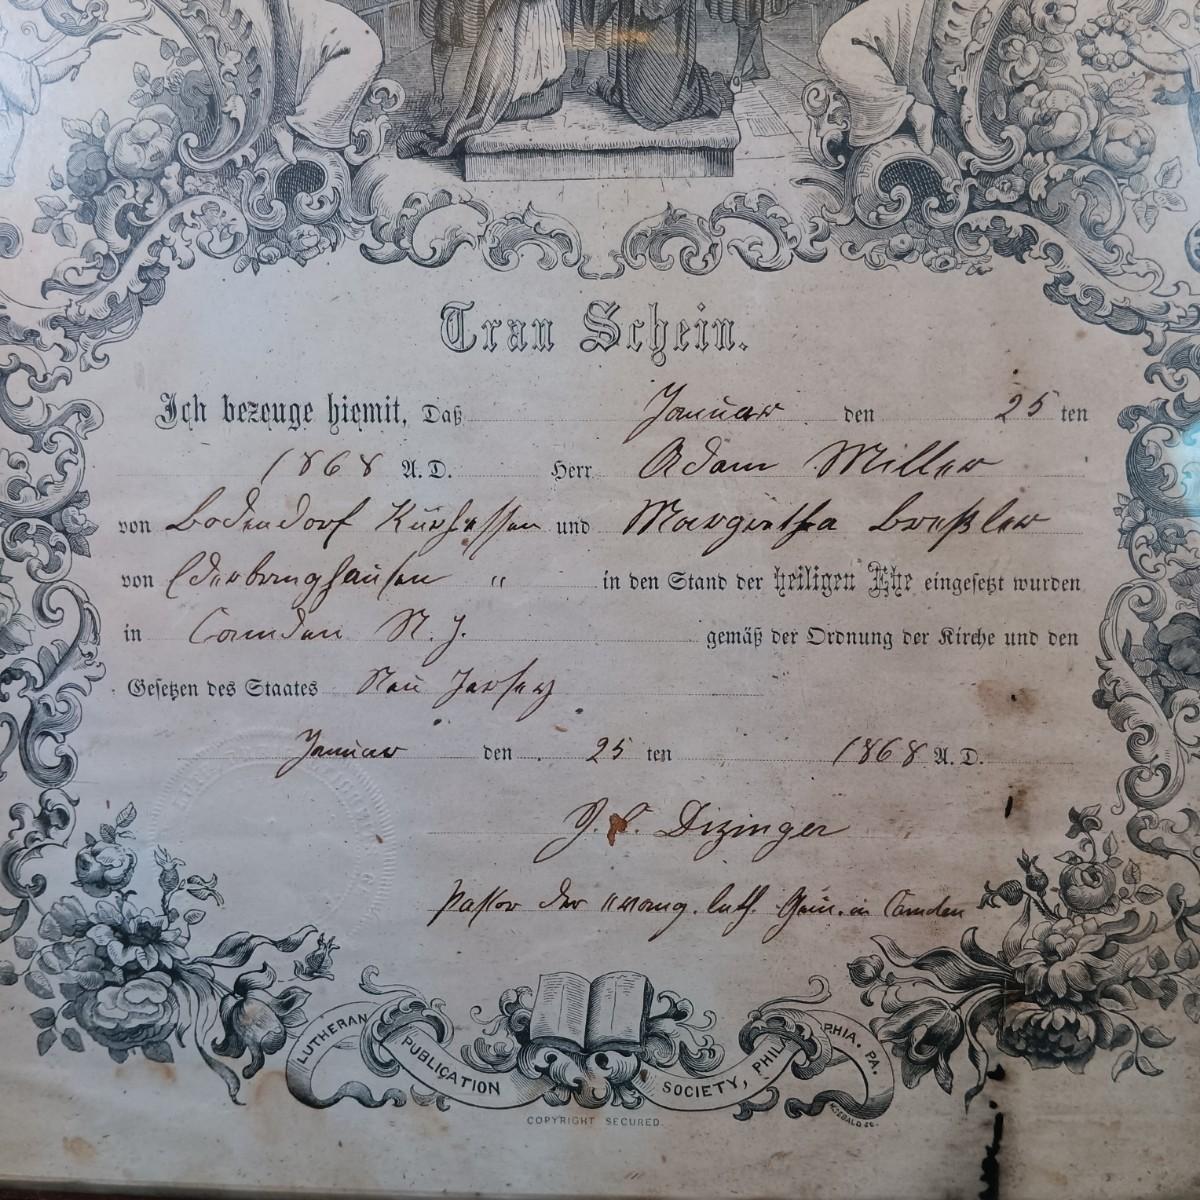 Trau Schein.
Ich bezeuge hiemit, Daß Januar den 25 ten
1868 A. D. Herr Adam Miller
von Bodendorf Kurhessen und Margretha Breßler
von Ederbringhausen " in den Stand der heiligen Ehe eingesetzt wurden
in Camden N. J. gemäß der Ordnung der Kirche und den
Gesetzen des Staates Neu Jersey
Januar den 25 ten 1868 A. D.
Dizinger
Pastor der evang. luth. Gem. in Camden
LUTHERAN PUBLICATION SOCIETY, PHILA RHIA. PA.
COPYRIGHT SECURED.